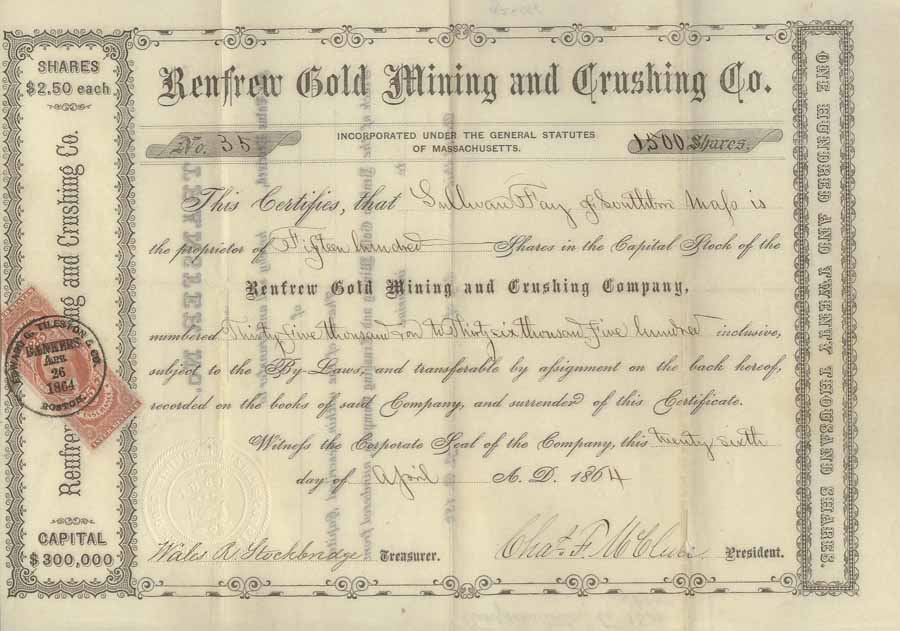 SHARES
$2.50 each
Renfrew Gold Mining and Crushing Co.
No. 35
INCORPORATED UNDER THE GENERAL STATUTES
OF MASSACHUSETTS.
1500 Shares.
This Certifies, that Sullivan Fay of Southboro Mass is
the proprietor of Fifteen hundred Shares in the Capital Stock of the
Renfrew Gold Mining and Crushing Company,
numbered Thirty five thousand to Thirty six thousand five hundred inclusive,
subject to the By-Laws, and transferable by assignment on the back hereof,
recorded on the books of said Company, and surrender of this Certificate.
Witness the Corporate Seal of the Company, this twenty sixth
day of April A. D. 1864
Wales R. Stockbridge Treasurer.
Chas. F. McClure President.
Renfrew ing and Crushing Co.
TILESTON & CO.
BANKERS
26
1864
BOSTON.
CAPITAL
$300,000
ONE HUNDRED AND TWENTY THOUSAND SHARES.
TRANSFER NO.